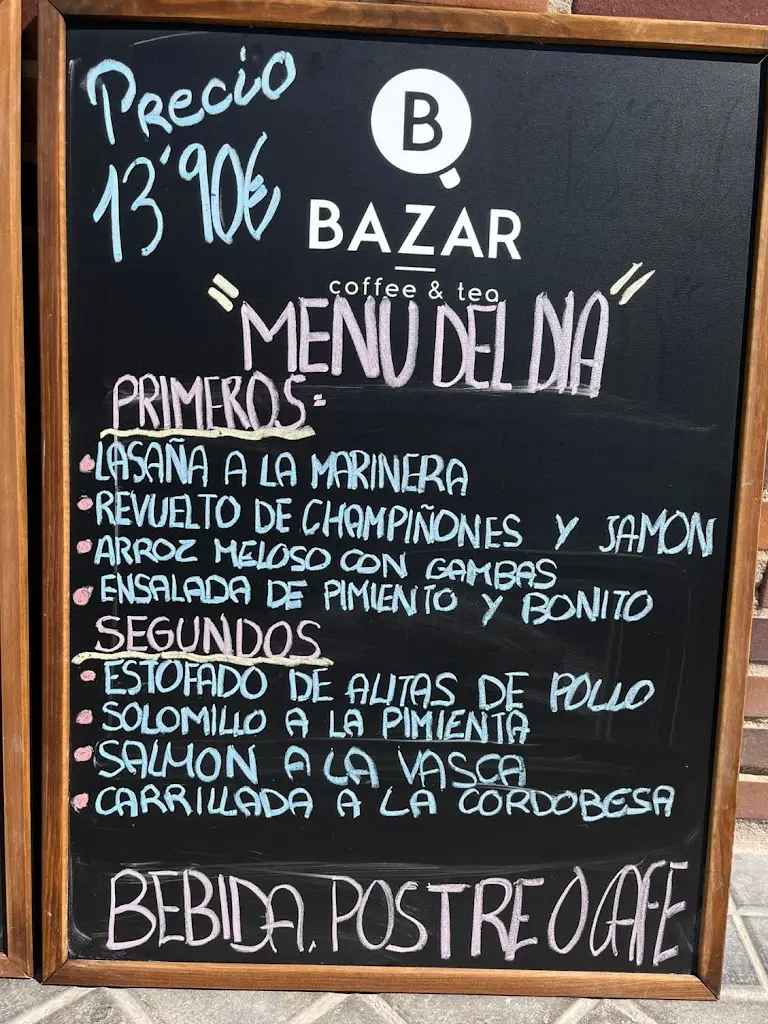 Precio
13'90€
B
BAZAR
coffee & tea
"MENU DEL DIA"
PRIMEROS:
• LASAÑA A LA MARINERA
• REVUELTO DE CHAMPIÑONES Y JAMON
• ARROZ MELOSO CON GAMBAS
• ENSALADA DE PIMIENTO Y BONITO
SEGUNDOS
• ESTOFADO DE ALITAS DE POLLO
• SOLOMILLO A LA PIMIENTA
• SALMON A LA VASCA
• CARRILLADA A LA CORDOBESA
BEBIDA, POSTRE O CAFE